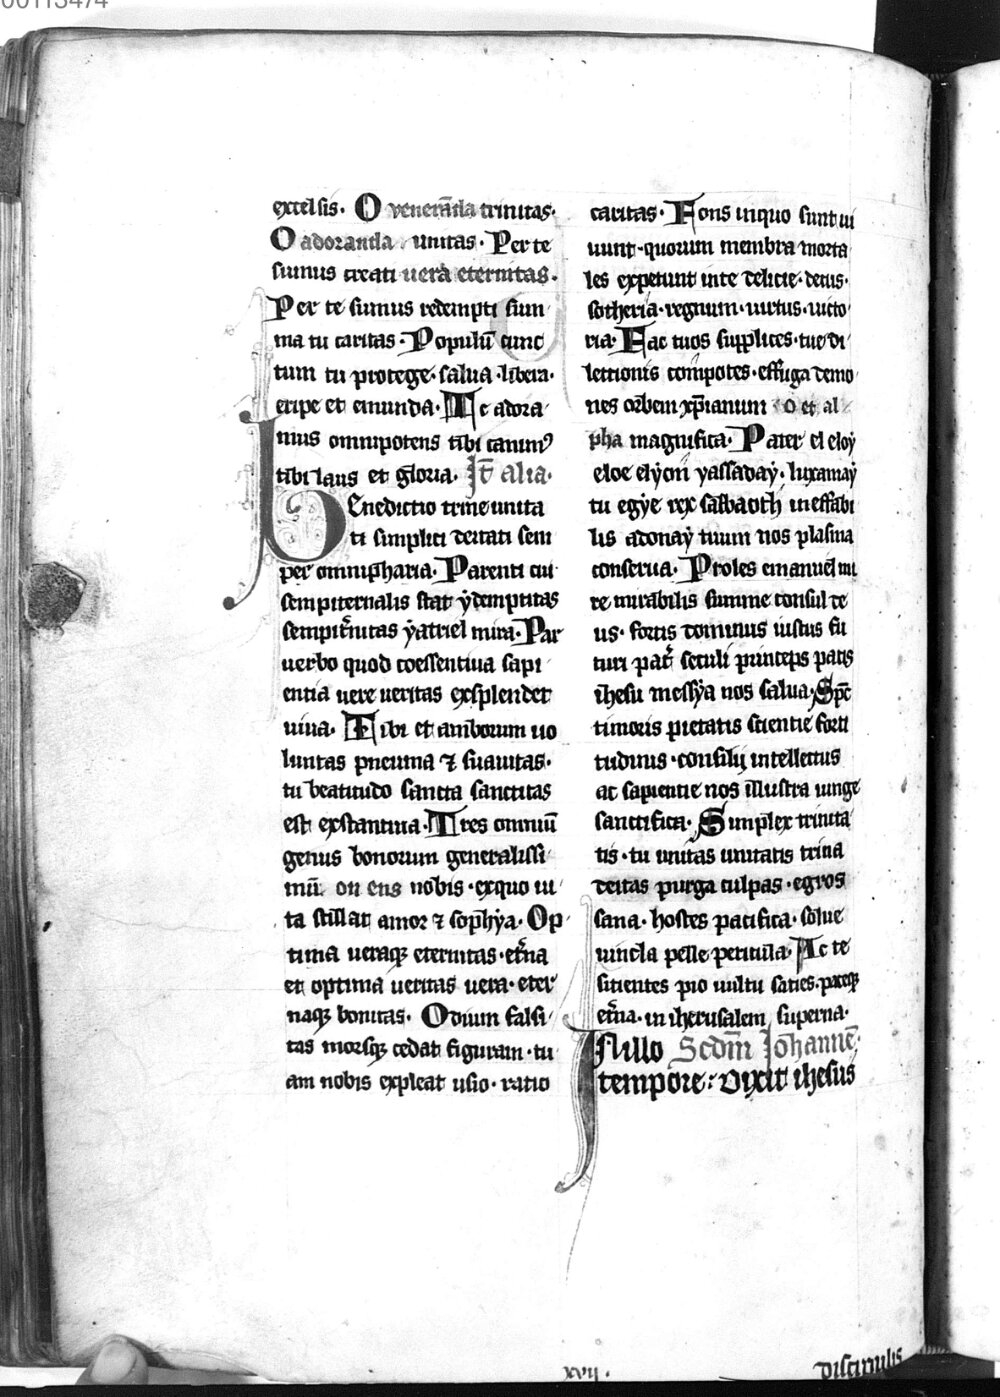 00113474
excelsis. O veneranda trinitas.
O adoranda unitas. Per te
sumus creati vera eternitas.
Per te sumus redempti sum
ma tu caritas. Populū cunc
tum tu protege. salua. libera.
eripe et emunda. Te adora
mus omnipotens tibi canimꝰ
tibi laus et gloria. It̄ alia.
Benedictio trine unita
ti simplici deitati sem
per omnipharia. Parenti cui
sempiternalis stat ydemptitas
sempit̄nitas yatriel mira. Par
uerbo quod coessentiua sapi
entia uere ueritas exsplendet
uiua. Tibi et amborum uo
luntas pneuma ⁊ suauitas.
tu beatitudo sancta sanctitas
est exstantiua. Tres omniū
genus bonorum generalissi
mū. on ens nobis. exquo ui
ta stillat amor ⁊ sophya. Op
tima ueraqꝫ eternitas. et̄na
et optima ueritas uera. eter
naqꝫ bonitas. Odium falsi
tas morsqꝫ cedat figuram. tu
am nobis expleat usio. ratio
caritas. Fons inquo sunt ui
uunt. quorum membra morta
les expetunt inte delicie. decus.
sotheria. regnum. uirtus. uicto
ria. Fac tuos supplices. tue di
lectionis compotes. effuga demo
nes orbem xp̄ianum o et al
pha magnifica. Pater el eloy
eloe elyon yassaday. luxamay
tu egye rex sabbaoth ineffabi
lis adonay tuum nos plasma
conserua. Proles emanuel mi
re mirabilis summe consul de
us. fortis dominus iustus fu
turi pat̄ seculi princeps pacis
ihesu messya nos salua. Spc̄
timoris pietatis scientie forti
tudinis. consilij intellectus
ac sapientie nos illustra iunge
sanctifica. Simplex trinita
tis. tu unitas unitatis trina
deitas purga culpas. egros
sana. hostes pacifica. solue
uincla pelle pericula. Ac te
sitientes pio uultu sacies. paceqꝫ
et̄na. in iherusalem superna.
In illo Scdm̄ Johannē.
tempore: Dixit ihesus
xvij.
discipulis